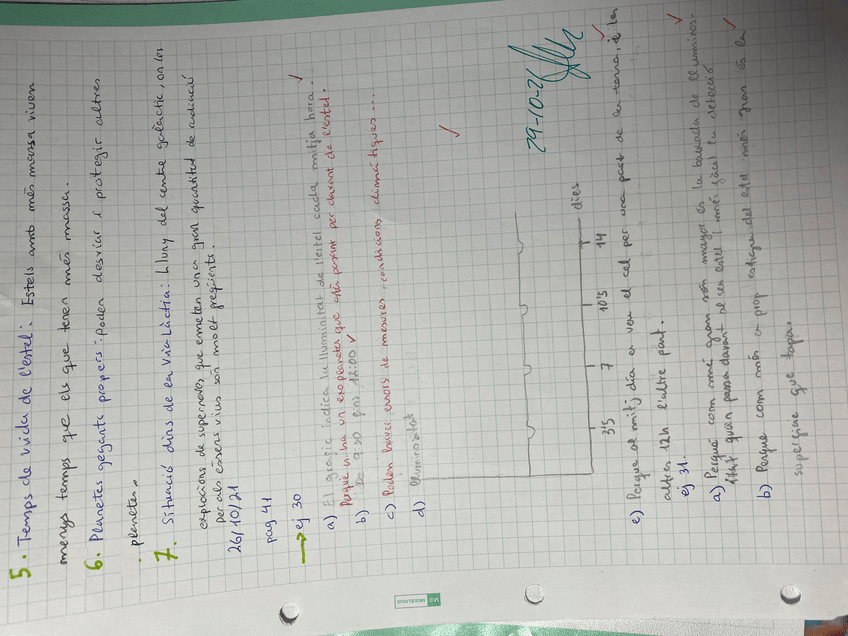 5. Temps de vida de l'estel: Estels amb més massa viuen
menys temps que els que tenen més massa.
6. Planetes gegants propers: poden desviar i protegir altres
planetes.
7. Situació dins de la Via Làctia: Lluny del centre galàctic, on les
explosions de supernoves que emeten una gran quantitat de radiació
per als éssers vius són molt freqüents.
26/10/21
pag 41
→ ej 30
a) El gràfic indica la lluminitat de l'estel cada mitja hora.
Perque hi ha un exoplaneta que està passant per davant de l'estel.
b) De 9:30 fins 12:00
c) Poden haver errors de mesures, condicions climàtiques....
d) lluminositat
3'5 7 10'5 14 dies
29-10-21
e) Perque al mitj dia es veu el cel per una part de la terra, i les
altres 12h l'altre part.
ej 31.
a) Perquè com més gran són mayor és la baixada de lluminos-
itat quan passa davant el seu estel i més fàcil la detecció
b) Perque com més a prop estigue del estel més gran és la
superficie que tapa.